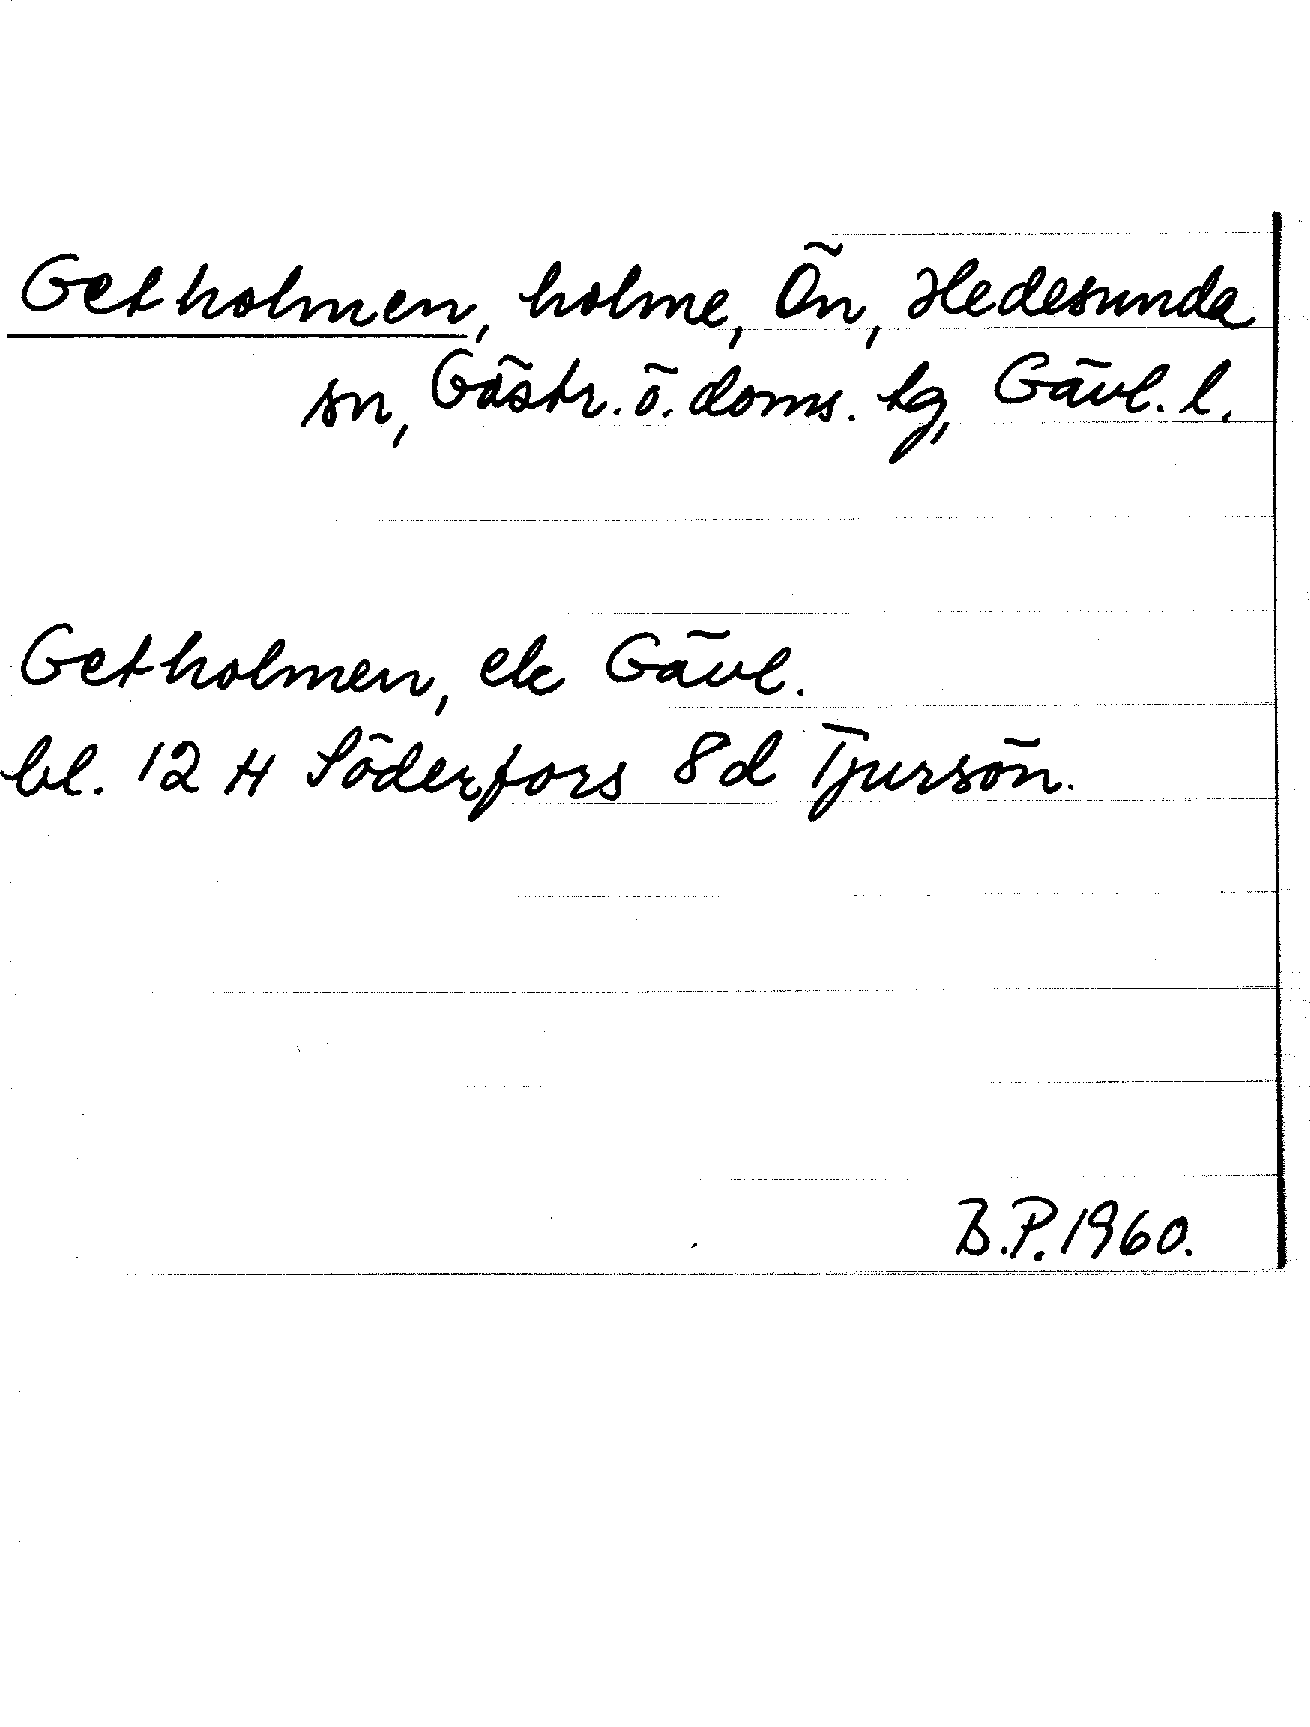 Getholmen, holme, Ön, Hedesunda
sn, Gästr. ö. doms. tg, Gävl. l.
Getholmen, ek Gävl.
bl. 12 H Söderfors 8d Tjursön.
B.P. 1960.